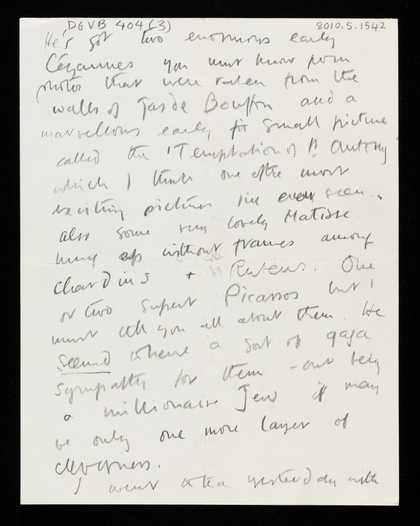 DGVB 404(3) 2010.5.1542
He's got two enormous early
Cézannes you must know from
photos that were taken from the
walls of Jas de Bouffon and a
marvellous early small picture
called the 'Temptation of St Antony
which I think one of the most
exciting pictures I've ever seen.
also some very lovely Matisse
hung up without frames among
Chardins + Rubens. One
or two superb Picassos but I
must tell you all about them. He
seemed to have a sort of gaga
sympathy for them - but being
a millionaire Jew it may
be only one more layer of
cleverness.
I went to tea yesterday with